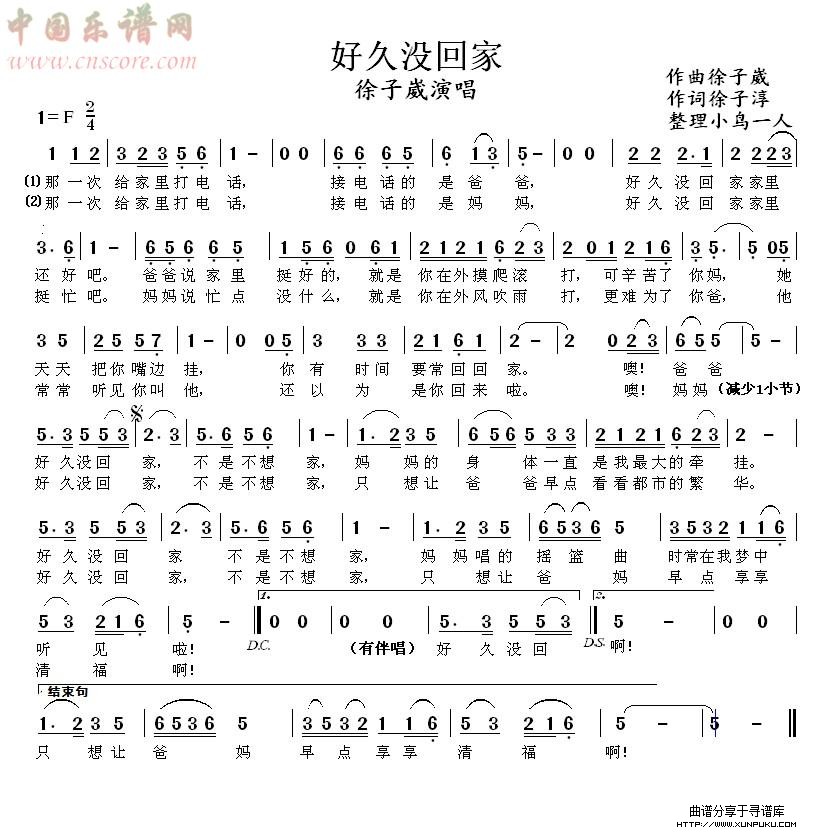 中国乐谱网
www.cnscore.com
好久没回家
徐子崴演唱
作曲徐子崴
作词徐子淳
整理小鸟一人
1=F 2/4
1 1 2 | 3 2 3 5 6 | 1 - | 0 0 | 6 6 6 5 | 6 1 3 | 5 - | 0 0 | 2 2 2·1 | 2 2 2 3 |
(1)那一次 给家里打电 话, 接电话的 是爸 爸, 好久没回 家家里
(2)那一次 给家里打电 话, 接电话的 是妈 妈, 好久没回 家家里
3·6 | 1 - | 6 5 6 6 5 | 1 5 6 0 6 1 | 2 1 2 1 6 2 3 | 2 0 1 2 1 6 | 3 5· | 5 0 5 |
还好 吧。 爸爸说家里 挺好的, 就是 你在外摸爬滚 打, 可辛苦了 你妈, 她
挺忙 吧。 妈妈说忙点 没什么, 就是 你在外风吹雨 打, 更难为了 你爸, 他
3 5 | 2 5 5 7 | 1 - | 0 0 5 | 3 3 3 | 2 1 6 1 | 2 - | 2 0 2 3 | 6 5 5 | 5 - |
天天 把你嘴边 挂, 你 有 时间 要常回回 家。 噢! 爸爸
常常 听见你叫 他, 还 以 为 是你回来 啦。 噢! 妈妈(减少1小节)
5·3 5 5 3 | 2·3 | 5·6 5 6 | 1 - | 1·2 3 5 | 6 5 6 5 3 5 | 2 1 2 1 6 2 3 | 2 - |
好久没回 家, 不是不想 家, 妈妈的 身 体一直 是我最大的牵 挂。
好久没回 家, 不是不想 家, 只想让 爸 爸早点 看看都市的繁 华。
5·3 5 5 3 | 2·3 | 5·6 5 6 | 1 - | 1·2 3 5 | 6 5 3 6 5 | 3 5 3 2 1 1 6 |
好久没回 家 不是不想 家, 妈妈唱的 摇篮曲 时常在我梦中
好久没回 家, 不是不想 家, 只想让爸 妈 早点享享
5 3 2 1 6 | 5 - | 1. 0 0 | 0 0 | 5·3 5 5 3 | 2. 5 - |
听见 啦! D.C. (有伴唱) 好久没回 D.S. 啊!
清福 啊!
结束句
1·2 3 5 | 6 5 3 6 5 | 3 5 3 2 1 1 6 | 5 3 2 1 6 | 5 - | 5 - ‖
只想让 爸 妈 早点享享 清 福 啊!
曲谱分享于寻谱库
WWW.XUNPUKU.COM